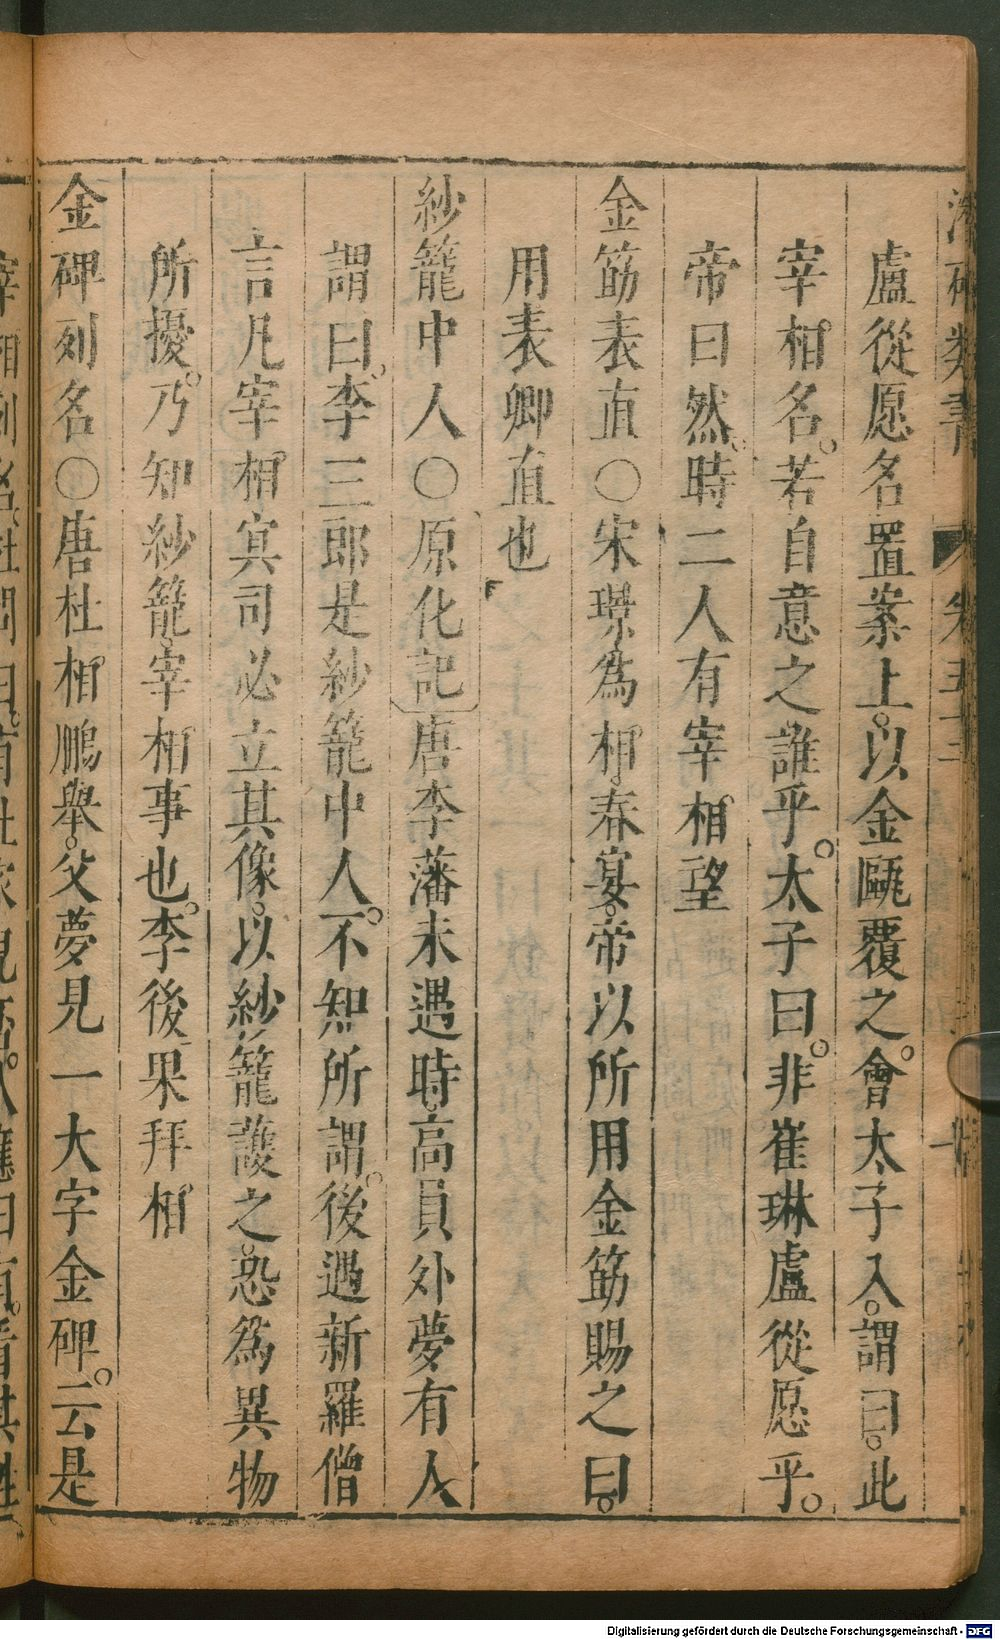 盧從愿名置案上。以金甌覆之。會太子入。謂曰。此
宰相名。若自意之誰乎。太子曰。非崔琳盧從愿乎。
帝曰然。時二人有宰相望
金筯表直○宋璟為相。春宴。帝以所用金筯賜之曰。
用表卿直也
紗籠中人○原化記唐李藩未遇時。高員外夢有人
謂曰。李三郎是紗籠中人。不知所謂。後遇新羅僧
言凡宰相冥司必立其像。以紗籠護之。恐為異物
所擾。乃知紗籠宰相事也。李後果拜相
金碑列名○唐杜相鵬舉。父夢見一大字金碑。云是
Digitalisierung gefördert durch die Deutsche Forschungsgemeinschaft - DFG